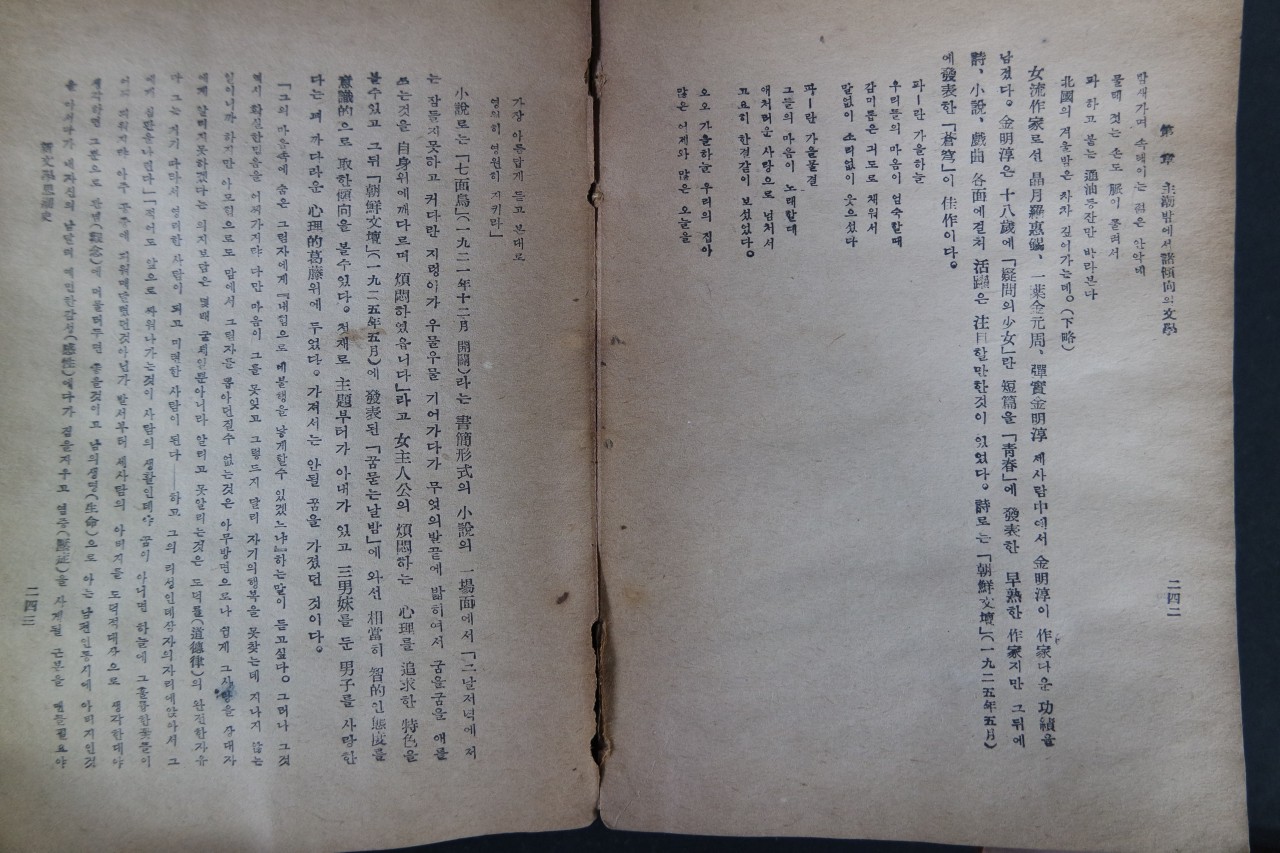 第 章 主潮밖에서 諸傾向의 文學
밤새가며 속태이는 젊은 안악네
물레 젓는 손도 脈이 풀려서
파 하고 붙는 通油등잔만 바라본다
北國의 겨울밤은 차차 깊어가는데。(下略)
女流作家로선 晶月羅惠錫、一葉金元周、彈實金明淳 세사람中에서 金明淳이 作家다운 功績을
남겼다。金明淳은 十八歲에「疑問의少女」란 短篇을「靑春」에 發表한 早熟한 作家지만 그뒤에
詩、小說、戲曲 各面에걸처 活躍은 注目할만한것이 있었다。詩로는「朝鮮文壇」(一九二五年五月)
에發表한「蒼穹」이 佳作이다。
파—란 가을하늘
우리들의 마음이 엄숙할때
감미롭은 기도로 채워서
말없이 소리없이 웃으섰다
파—란 가을물결
그들의 마음이 노래할때
애처러운 사랑으로 넘처서
고요히 한결같이 보섰었다。
오오 가을하눌 우리의 집아
많은 어제와 많은 오늘을
二四二
가장 아름답게 듣고 본대로
영원히 영원히 지키라」
小說로는「七面鳥」(一九二一年十二月 開闢)라는 書簡形式의 小說의 一場面에서「二날저녁에 저
는 잠들지못하고 커다만 지렁이가 우물우물 기어가다가 무엇의발끝에 밟히여서 굼을굼을 애를
쓰는것을 自身위에깨다르며 煩悶하였읍니다」라고 女主人公의 煩悶하는 心理를 追求한 特色을
볼수있고 그뒤「朝鮮文壇」(一九二五年五月)에 發表된「꿈묻는날밤」에 와선 相當히 智的인態度를
意識的으로 取한傾向을 볼수있다。첫제로 主題부터가 아내가 있고 三男妹를 둔 男子를 사랑한
다는 꽤 까다라운 心理的葛藤위에 두었다。가져서는 안될 꿈을 가졌던 것이다。
「그의 마음속에 숨은 그림자에게『내힘으로 네불행을 낳게할수 있겠느냐』하는말이 듣고싶다。그러나 그것
에서 확실한믿음을 어찌가지랴 다만 마음이 그를 못잊고 그렇드지 달리 자기의행복을 못찾는데 지나지 않는
일이니까 하지만 아모힘으로도 맘에서 그림자를 뽑아던질수 없는것은 아무방면으로나 쉽게 그사랑을 상대자
에게 알리지못하겠다는 의지보담은 몇배 굳세일뿐아니라 알리고 못알리는것은 도덕률(道德律)의 완전한자유
다 그는 거기 따라서 영리한 사람이 되고 미련한 사람이 된다——하고 그의 리성인데상자의자리에앉아서 그
사람의 아비지를 도덕적대상으로 생각한대야
남의생명(生命)으로 아는 남편인동시에 아비지인것
二四三